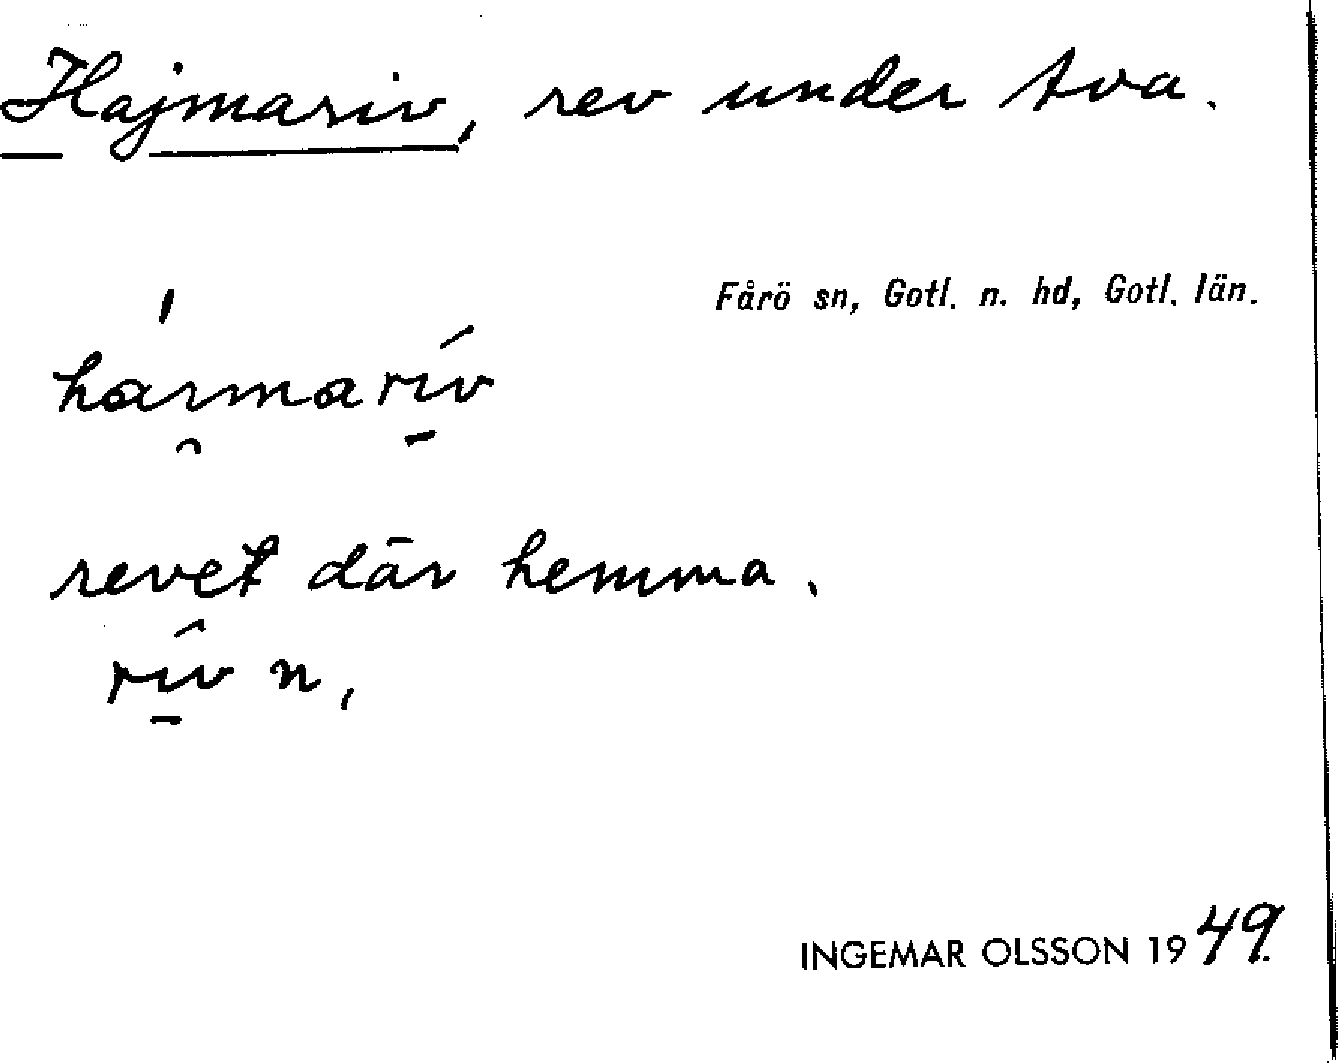 Hajmariv, rev under tva.
Fårö sn, Gotl. n. hd, Gotl. län.
háımarív
revet där hemma.
rîv n,
INGEMAR OLSSON 1949.